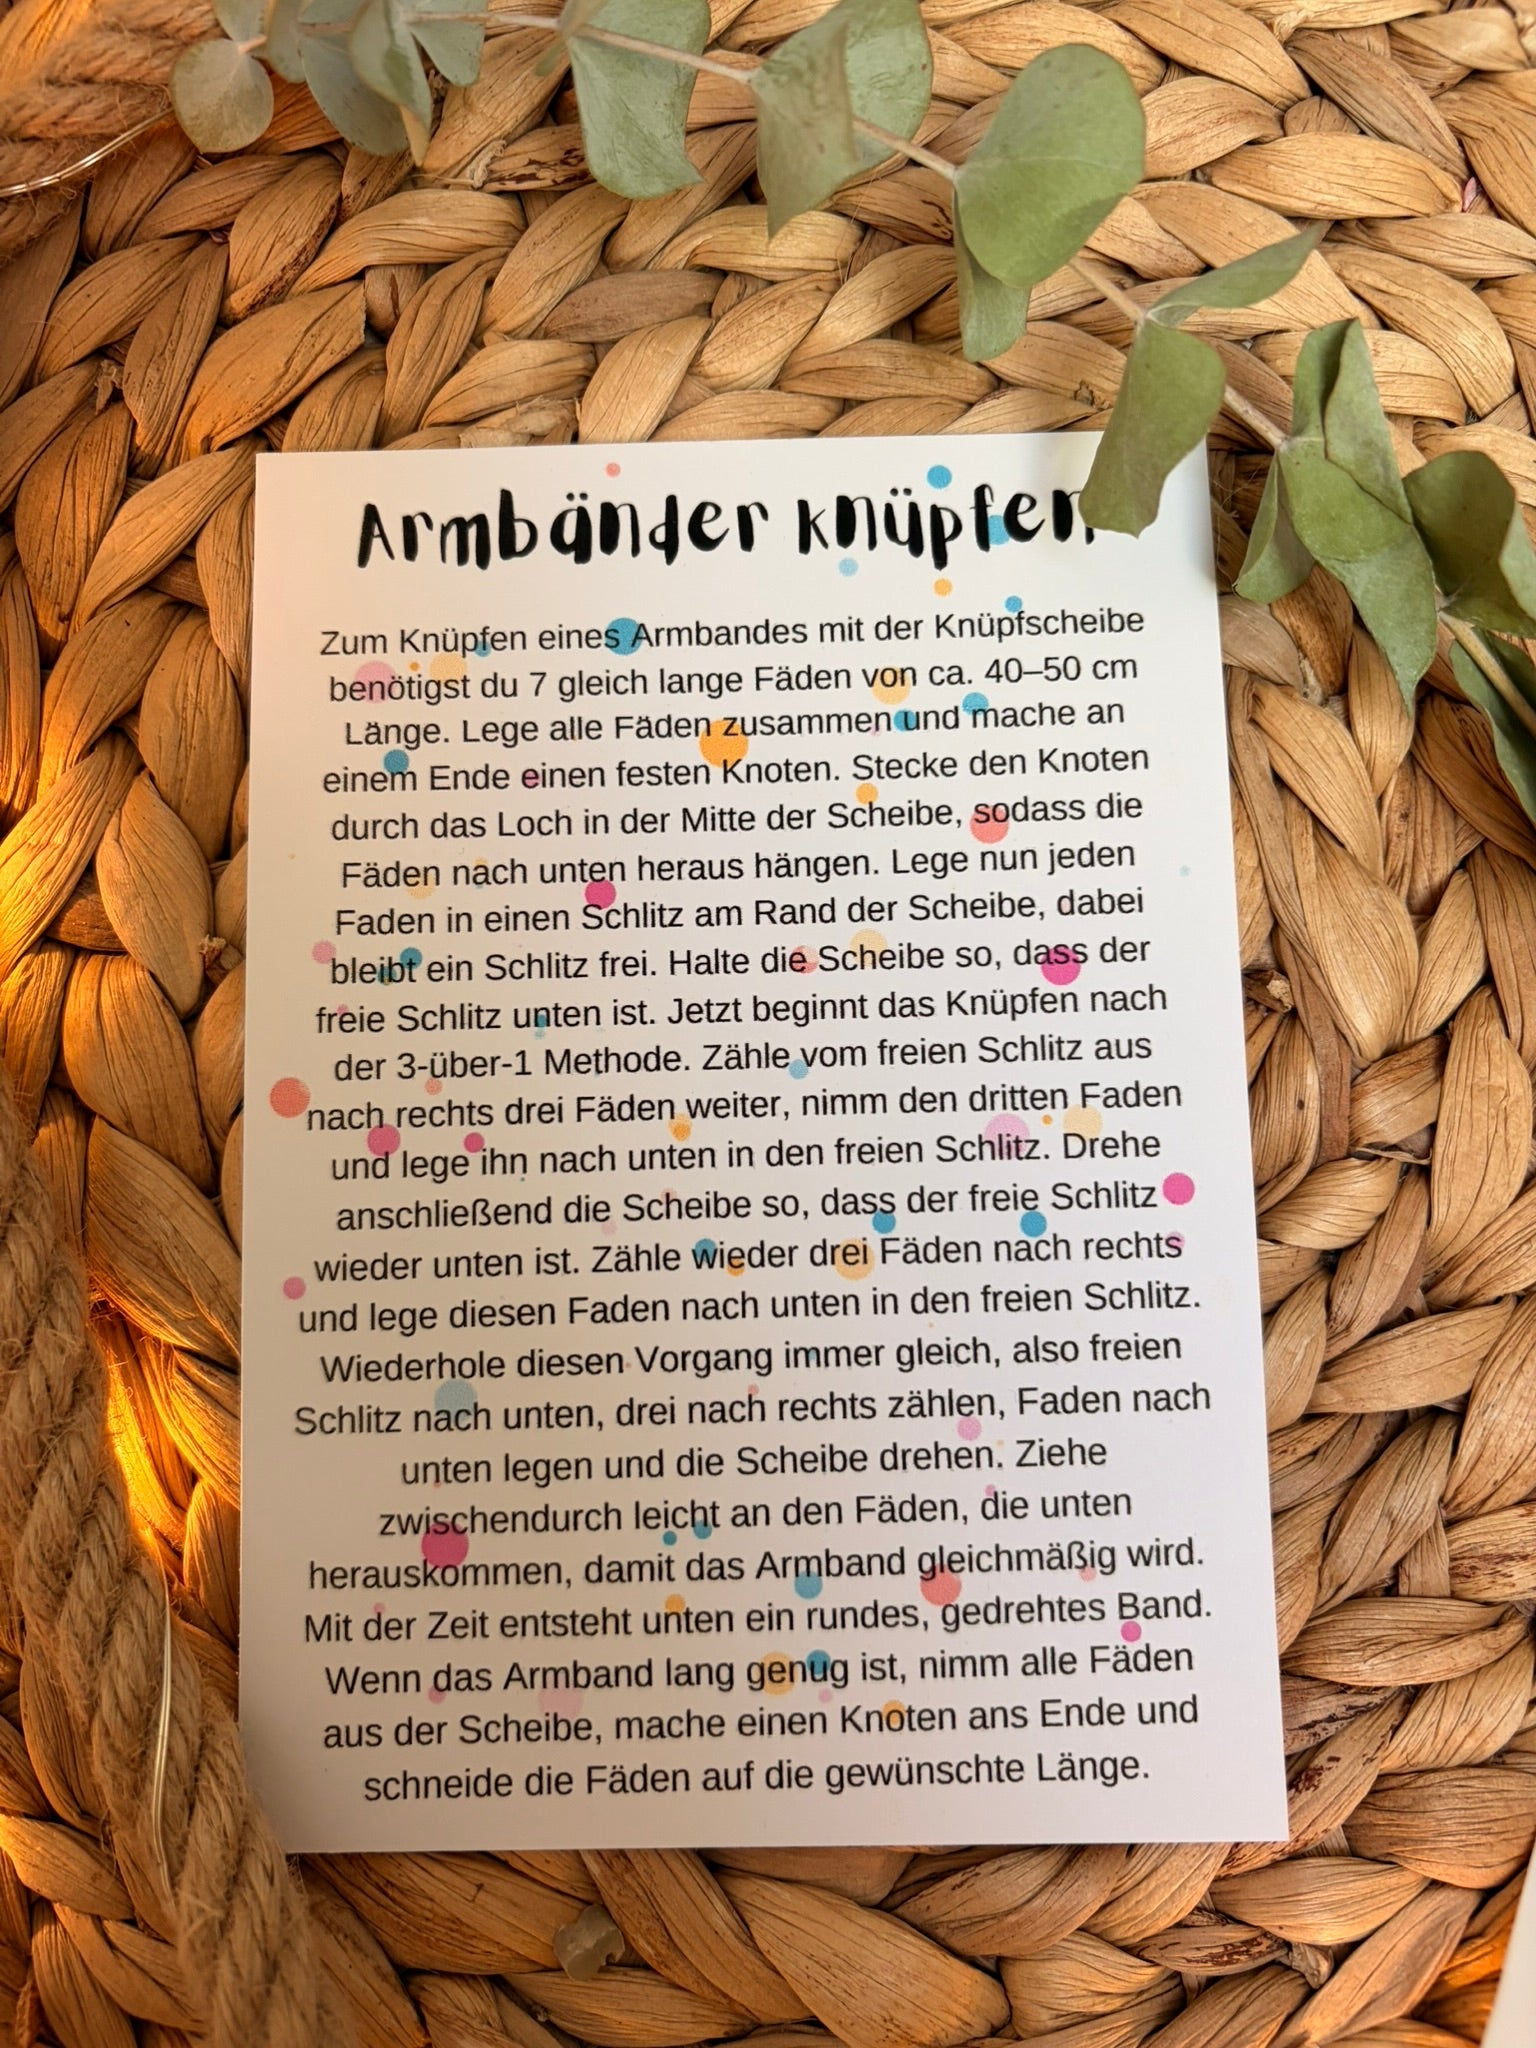 Armbänder knüpfen
Zum Knüpfen eines Armbandes mit der Knüpfscheibe
benötigst du 7 gleich lange Fäden von ca. 40–50 cm
Länge. Lege alle Fäden zusammen und mache an
einem Ende einen festen Knoten. Stecke den Knoten
durch das Loch in der Mitte der Scheibe, sodass die
Fäden nach unten heraus hängen. Lege nun jeden
Faden in einen Schlitz am Rand der Scheibe, dabei
bleibt ein Schlitz frei. Halte die Scheibe so, dass der
freie Schlitz unten ist. Jetzt beginnt das Knüpfen nach
der 3-über-1 Methode. Zähle vom freien Schlitz aus
nach rechts drei Fäden weiter, nimm den dritten Faden
und lege ihn nach unten in den freien Schlitz. Drehe
anschließend die Scheibe so, dass der freie Schlitz
wieder unten ist. Zähle wieder drei Fäden nach rechts
und lege diesen Faden nach unten in den freien Schlitz.
Wiederhole diesen Vorgang immer gleich, also freien
Schlitz nach unten, drei nach rechts zählen, Faden nach
unten legen und die Scheibe drehen. Ziehe
zwischendurch leicht an den Fäden, die unten
herauskommen, damit das Armband gleichmäßig wird.
Mit der Zeit entsteht unten ein rundes, gedrehtes Band.
Wenn das Armband lang genug ist, nimm alle Fäden
aus der Scheibe, mache einen Knoten ans Ende und
schneide die Fäden auf die gewünschte Länge.